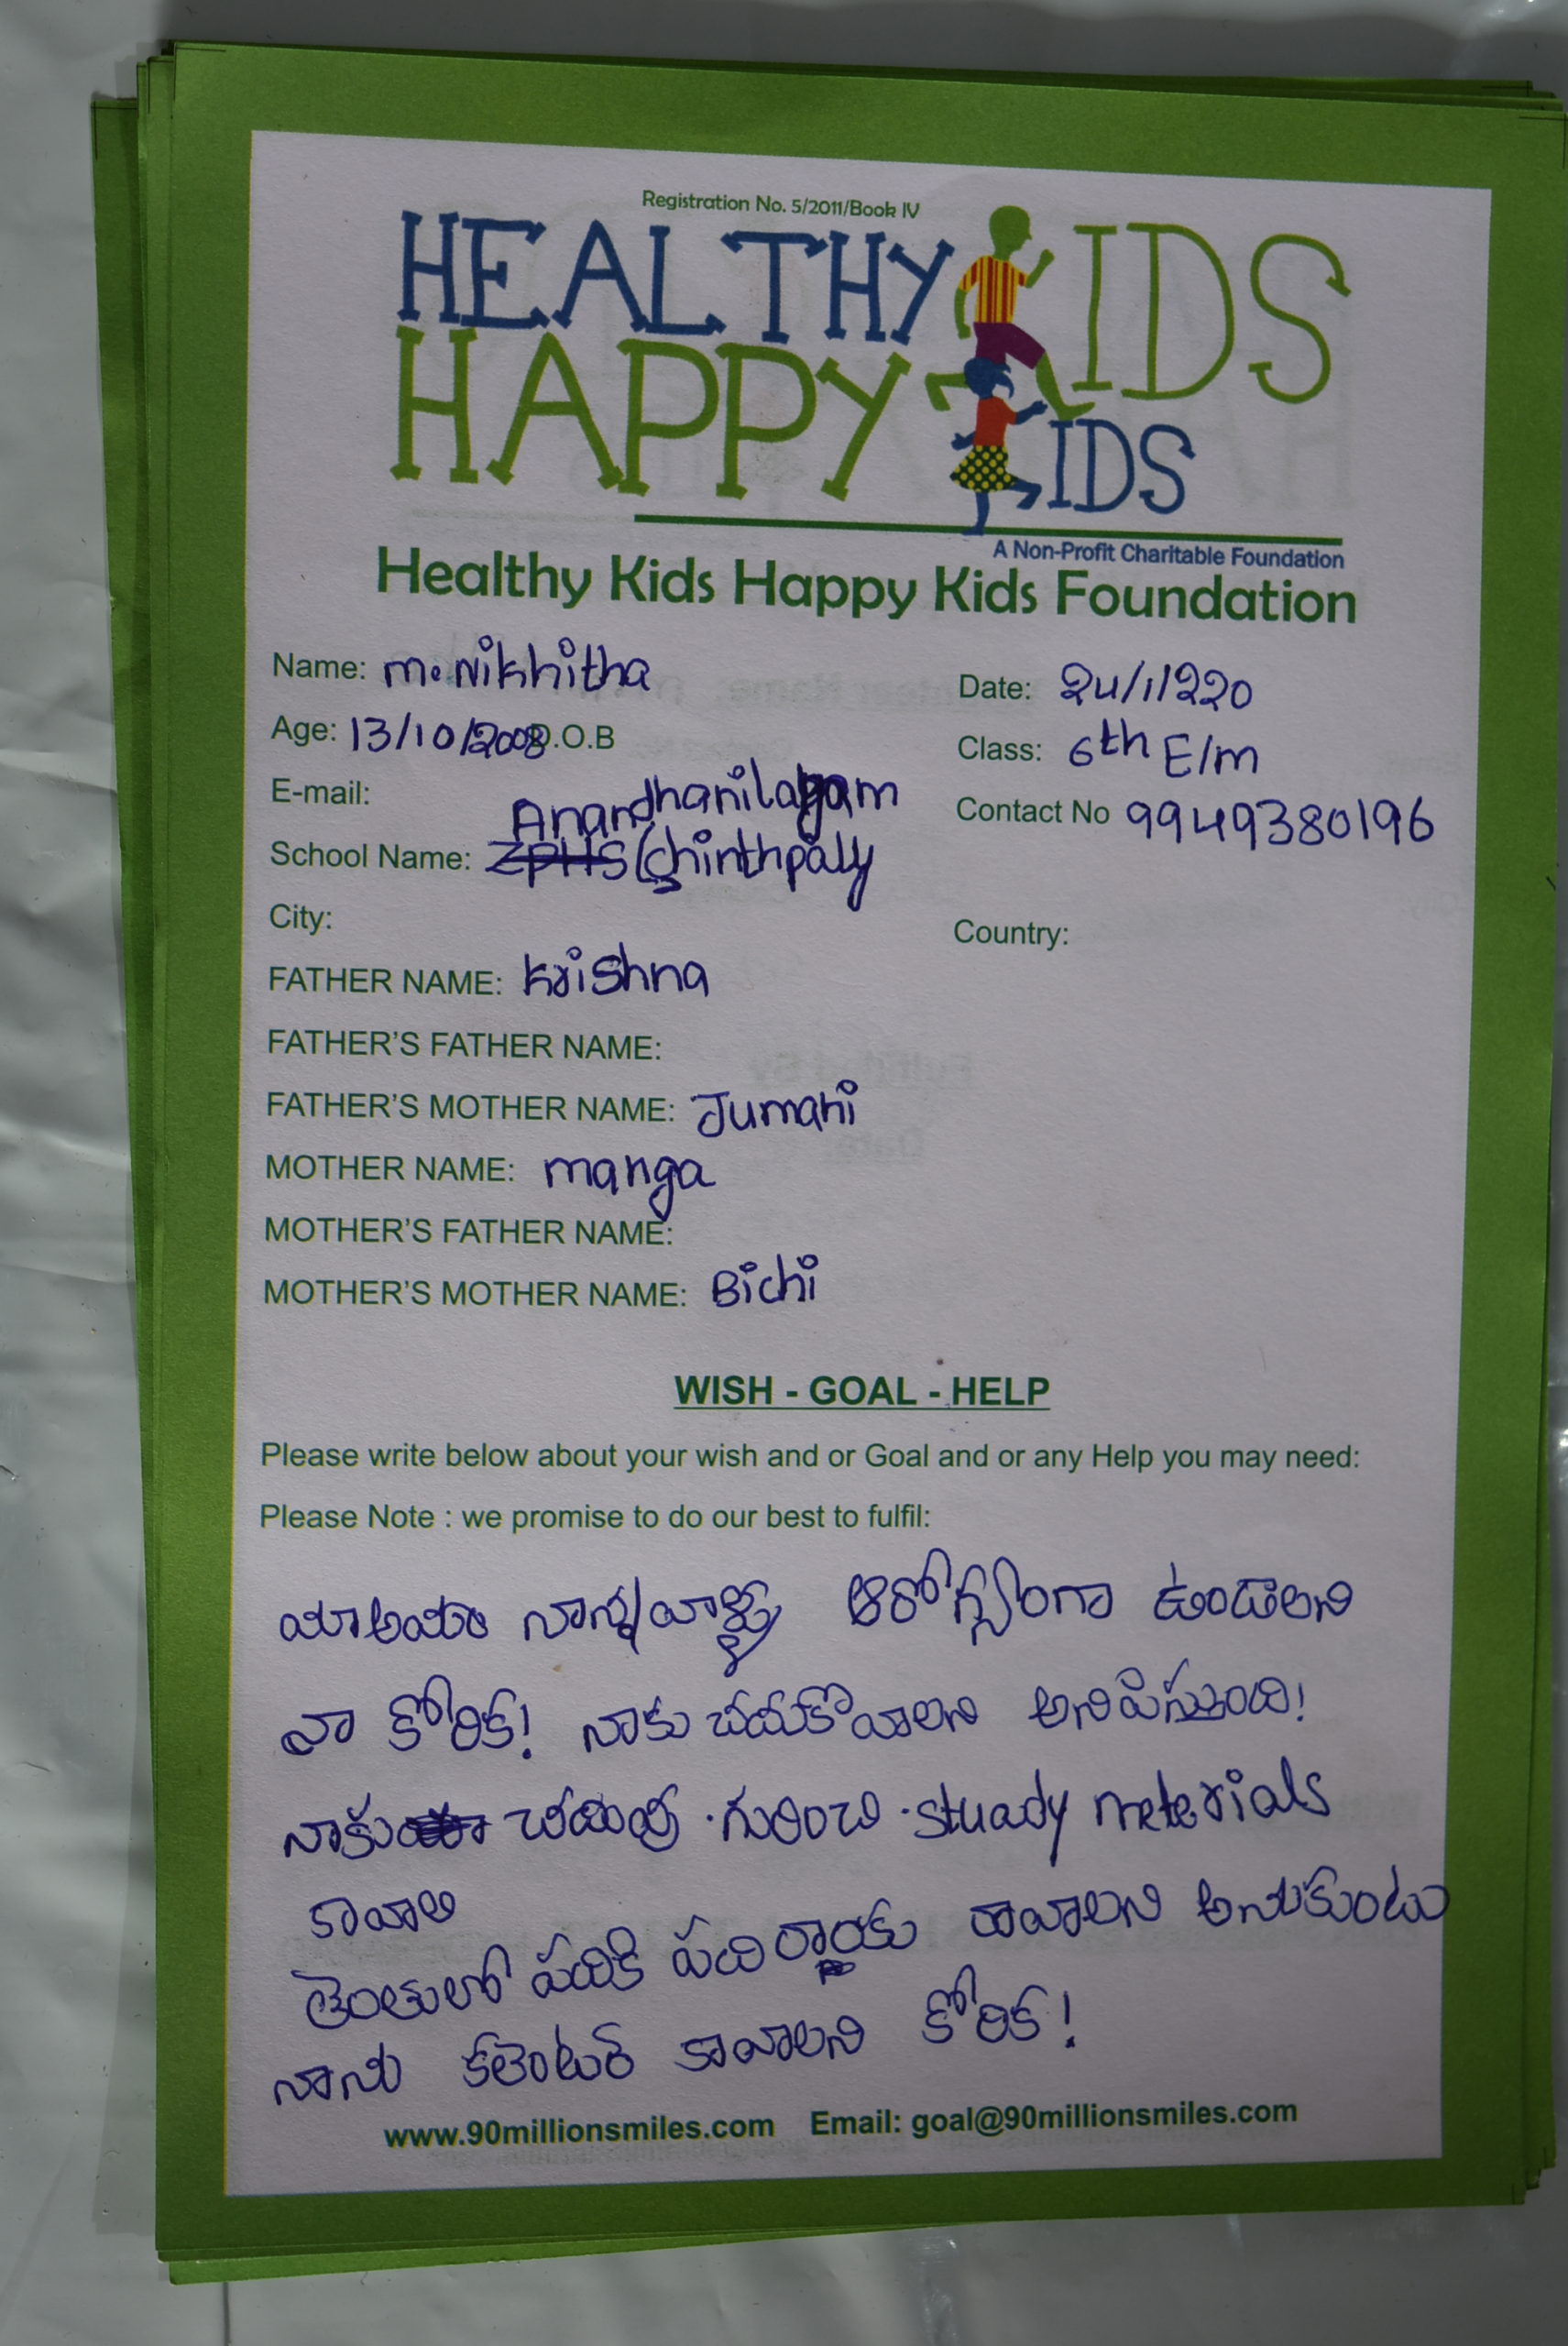 Registration No. 5/2011/Book IV
HEALTHY KIDS
HAPPY KIDS
A Non-Profit Charitable Foundation
Healthy Kids Happy Kids Foundation
Name: M. Nikhitha
Date: 24/1/220
Age: 13/10/2008 D.O.B
Class: 6th E/m
E-mail:
Contact No 9949380196
Anandhanilayam
School Name: ZPHS (Chinthpally
City:
Country:
FATHER NAME: Krishna
FATHER'S FATHER NAME:
FATHER'S MOTHER NAME: Jumani
MOTHER NAME: manga
MOTHER'S FATHER NAME:
MOTHER'S MOTHER NAME: Bichi
WISH - GOAL - HELP
Please write below about your wish and or Goal and or any Help you may need:
Please Note : we promise to do our best to fulfil:
నాన్న వాళ్ళు ఆరోగ్యంగా ఉండాలని
నా కోరిక! నాకు అనిపిస్తుంది!
నాకు చదువు గురించి stuady meterials
కావాలి
పదికి పది రావాలని అనుకుంటు
నాను కలెంటర్ కావాలని కోరిక!
www.90millionsmiles.com Email: goal@90millionsmiles.com